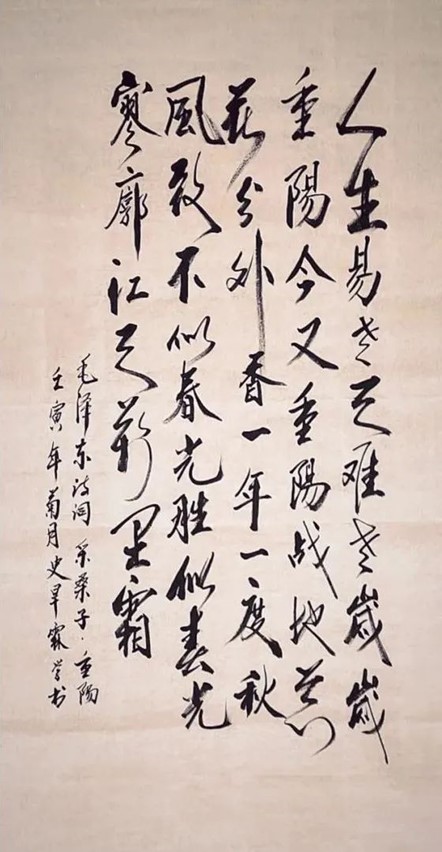 人生易老天难老歲歲
重陽今又重陽战地黄
花分外香一年一度秋
風劲不似春光胜似春光
寥廓江天萬里霜
毛泽东诗词 采桑子·重陽
壬寅年菊月史旱霖学书